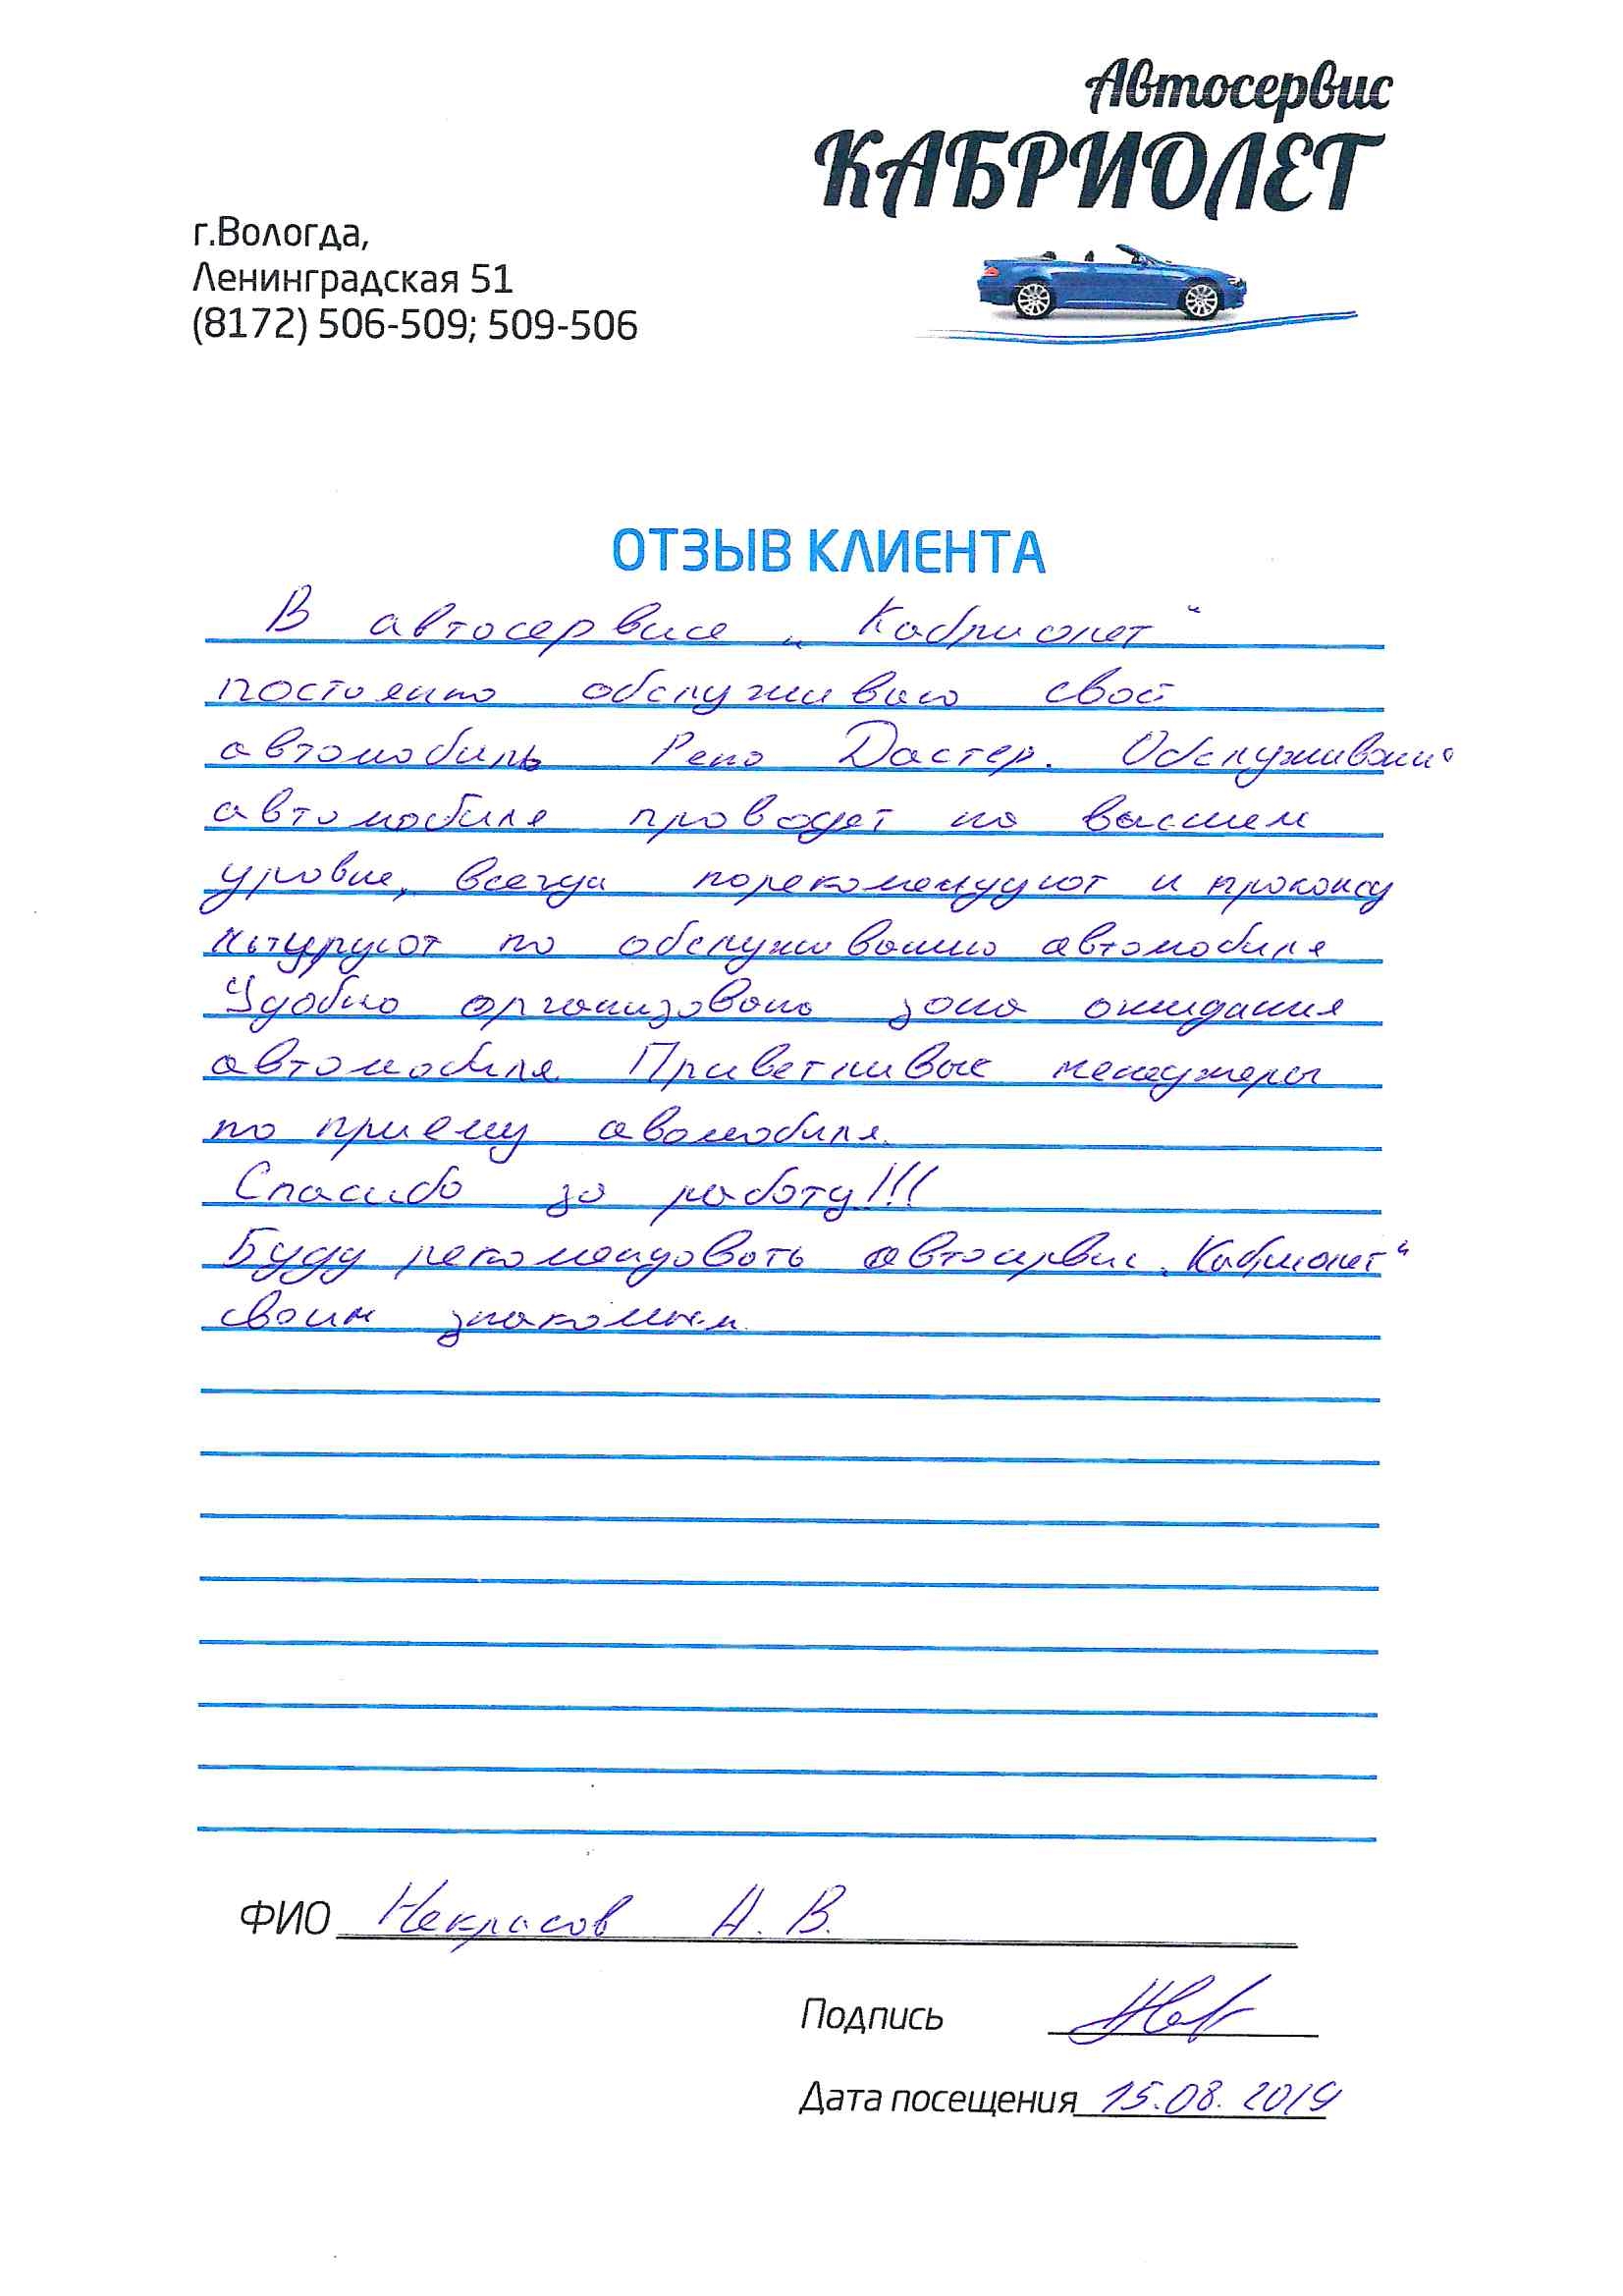 Автосервис
КАБРИОЛЕТ
г.Вологда,
Ленинградская 51
(8172) 506-509; 509-506
ОТЗЫВ КЛИЕНТА
В автосервисе „Кабриолет“
постояно обслуживаю свой
автомобиль Рено Дастер. Обслуживание
автомобиля проводят на высшем
уровне, всегда порекомендуют и проконсу
льтируют по обслуживанию автомобиля
Удобно организована зона ожидания
автомобиля. Приветливые менеджеры
по приему авомобиля.
Спасибо за работу!!!
Буду рекомендовать автосервис „Кабриолет“
своим знакомым.
ФИО Некрасов А. В.
Подпись
Дата посещения 15.08.2019